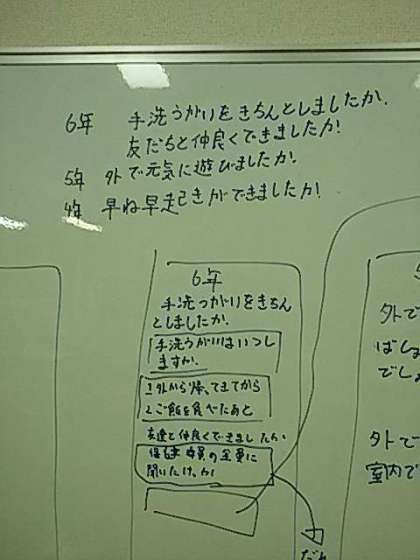 6年 手洗うがいをきちんとしましたか.
友だちと仲良くできましたか!
5年 外で元気に遊びましたか.
4年 早ね早起きができましたか!
6年
手洗うがいをきちん
としましたか.
手洗うがいはいつし
ますか.
1.外から帰ってきてから
2.ご飯を食べたあと
友達と仲良くできましたか
の全員に
聞いたけっか
外で
ばしょ
でしょ
外で
室内で